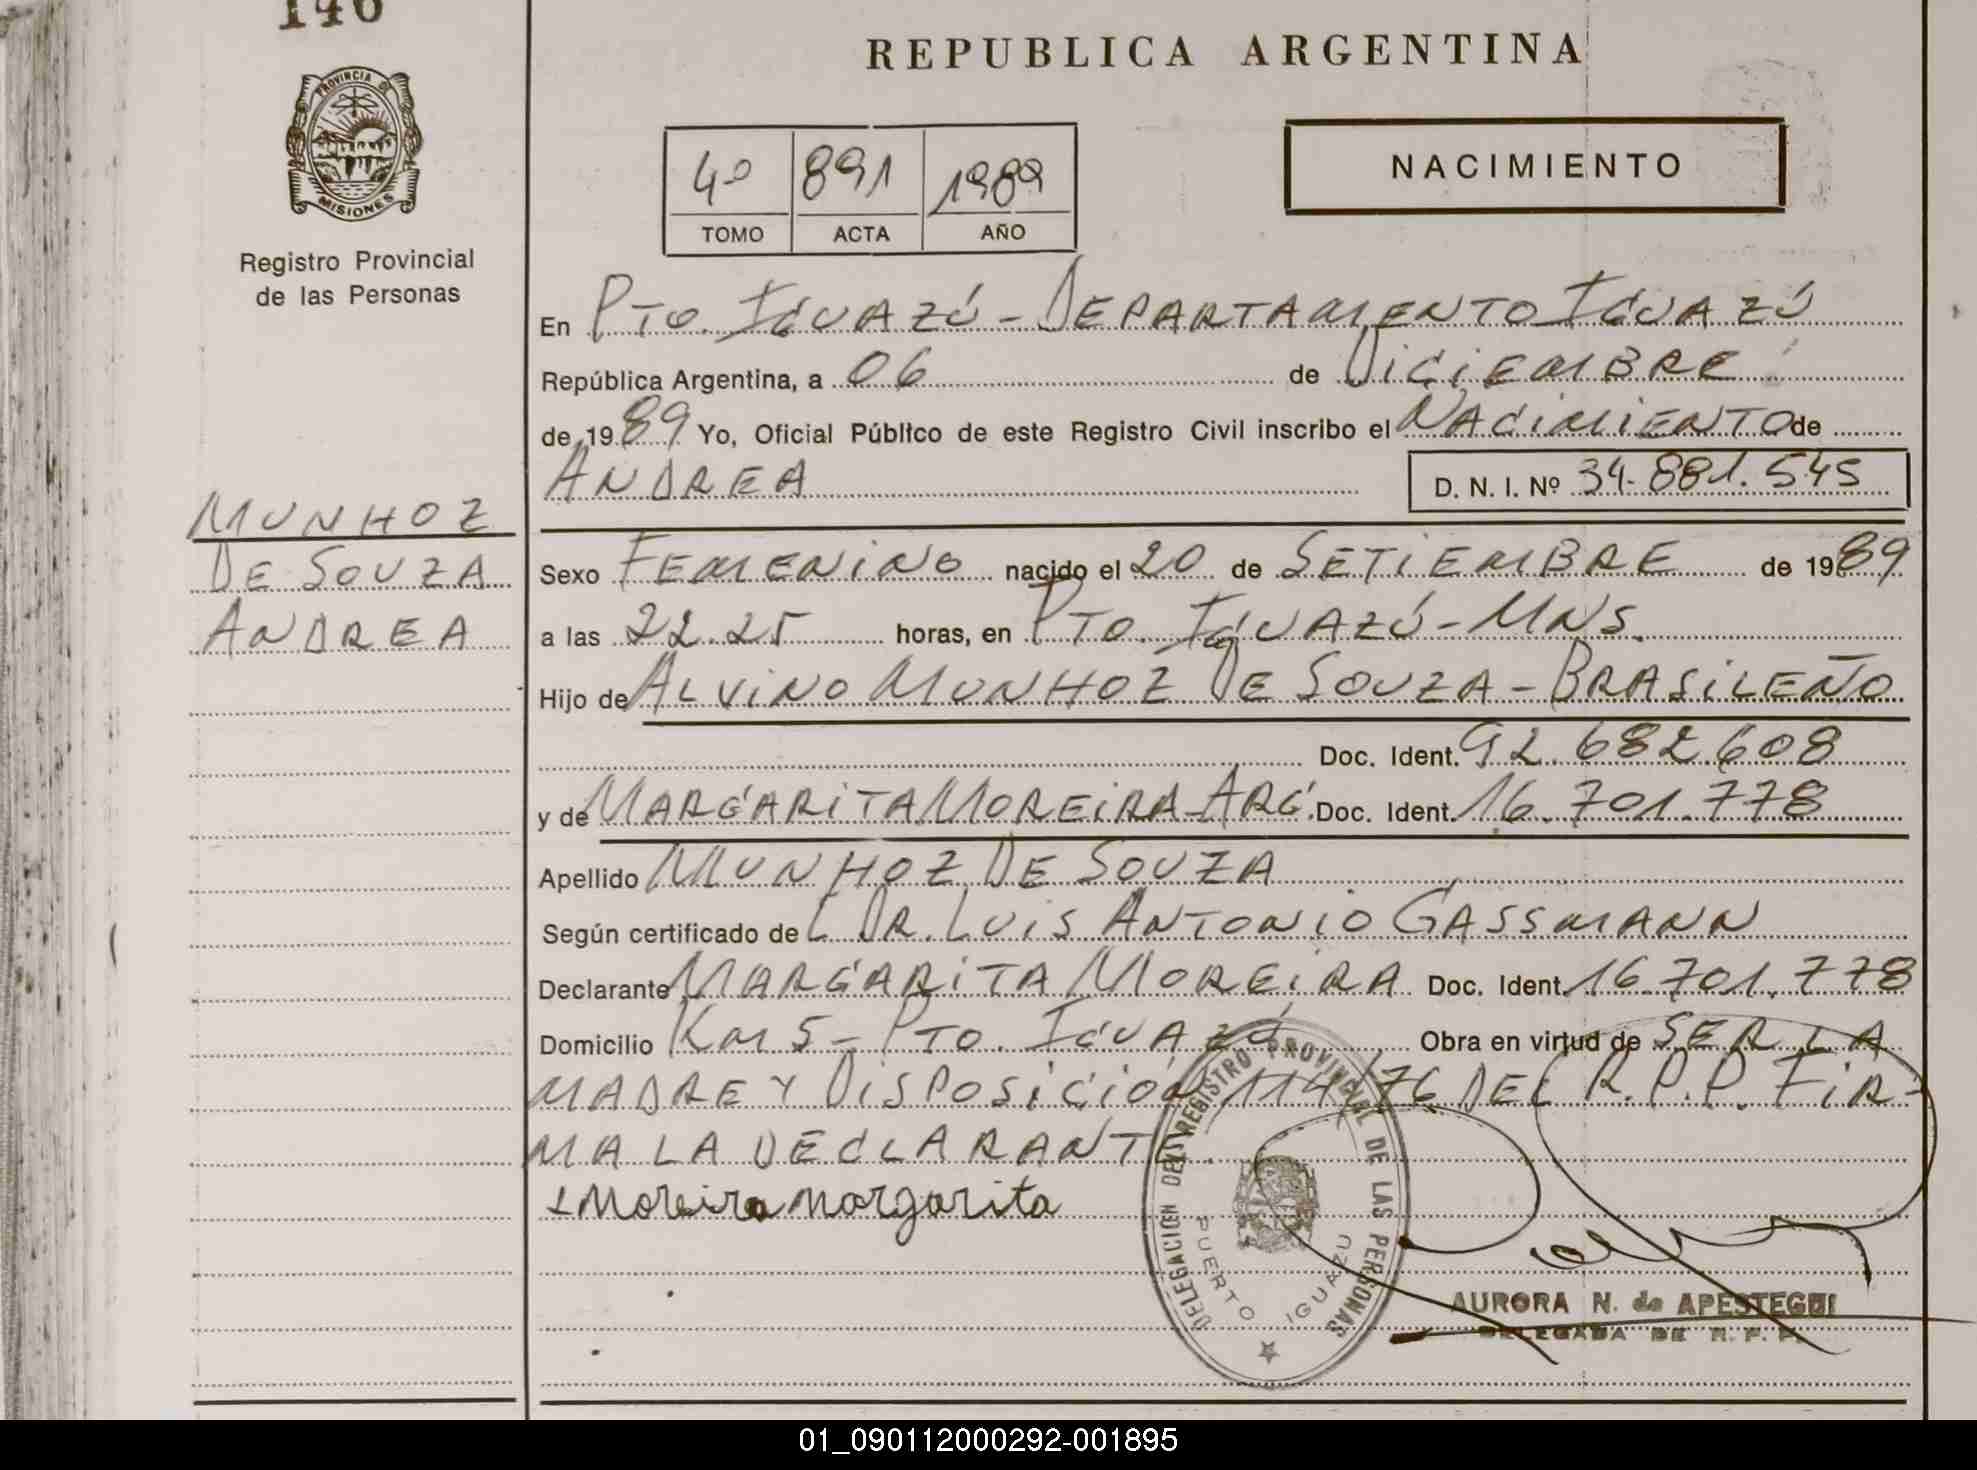 146
PROVINCIA DE
MISIONES
Registro Provincial
de las Personas
MUNHOZ
DE SOUZA
ANDREA
REPUBLICA ARGENTINA
4º 891 1989
TOMO ACTA AÑO
NACIMIENTO
En PTO. IGUAZÚ - DEPARTAMENTO IGUAZÚ
República Argentina, a 06 de DICIEMBRE
de 1989 Yo, Oficial Público de este Registro Civil inscribo el NACIMIENTO de
ANDREA D. N. I. Nº 34.881.545
Sexo FEMENINO nacido el 20 de SETIEMBRE de 1989
a las 22.25 horas, en PTO. IGUAZÚ - MNS.
Hijo de ALVINO MUNHOZ DE SOUZA - BRASILEÑO
Doc. Ident. 92.682.608
y de MARGARITA MOREIRA - ARG. Doc. Ident. 16.701.778
Apellido MUNHOZ DE SOUZA
Según certificado de DR. LUIS ANTONIO GASSMANN
Declarante MARGARITA MOREIRA Doc. Ident. 16.701.778
Domicilio KM 5 - PTO. IGUAZÚ Obra en virtud de SER LA
MADRE Y DISPOSICIÓN 114/76 DEL R.P.P. FIR-
MA LA DECLARANTE.
Moreira Margarita
DELEGACION DEL REGISTRO PROVINCIAL DE LAS PERSONAS
PUERTO IGUAZU
AURORA N. de APESTEGUI
DELEGADA DE R. P. P.
01_090112000292-001895